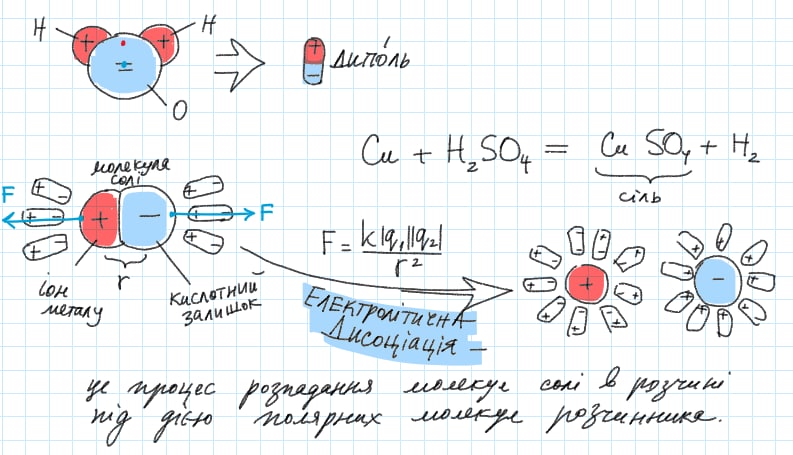 H H
+ +
=
O
+
-
диполь
Cu + H₂SO₄ = CuSO₄ + H₂
сіль
молекула
солі
F F
+ -
r
іон
металу
кислотний
залишок
F = k|q₁||q₂| / r²
Електролітична
Дисоціація –
+ -
це процес розпадання молекул солі в розчині
під дією полярних молекул розчинника.